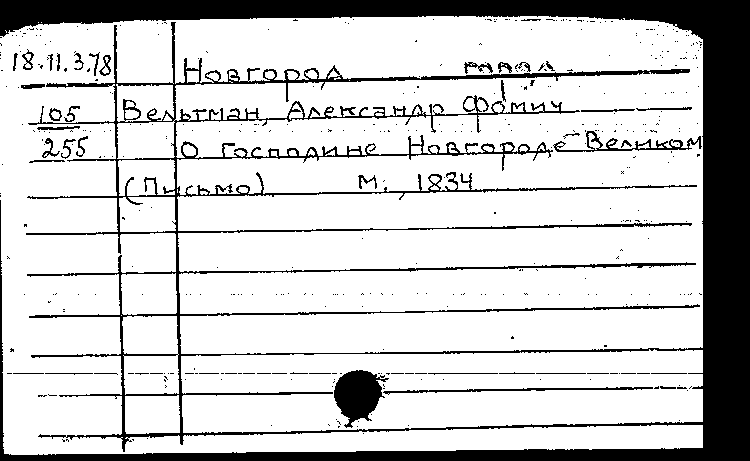 18.11.3.78 Новгород
105 Вельтман, Александр Фомич
255 О Господине Новгороде Великом
(Письмо) М., 1834